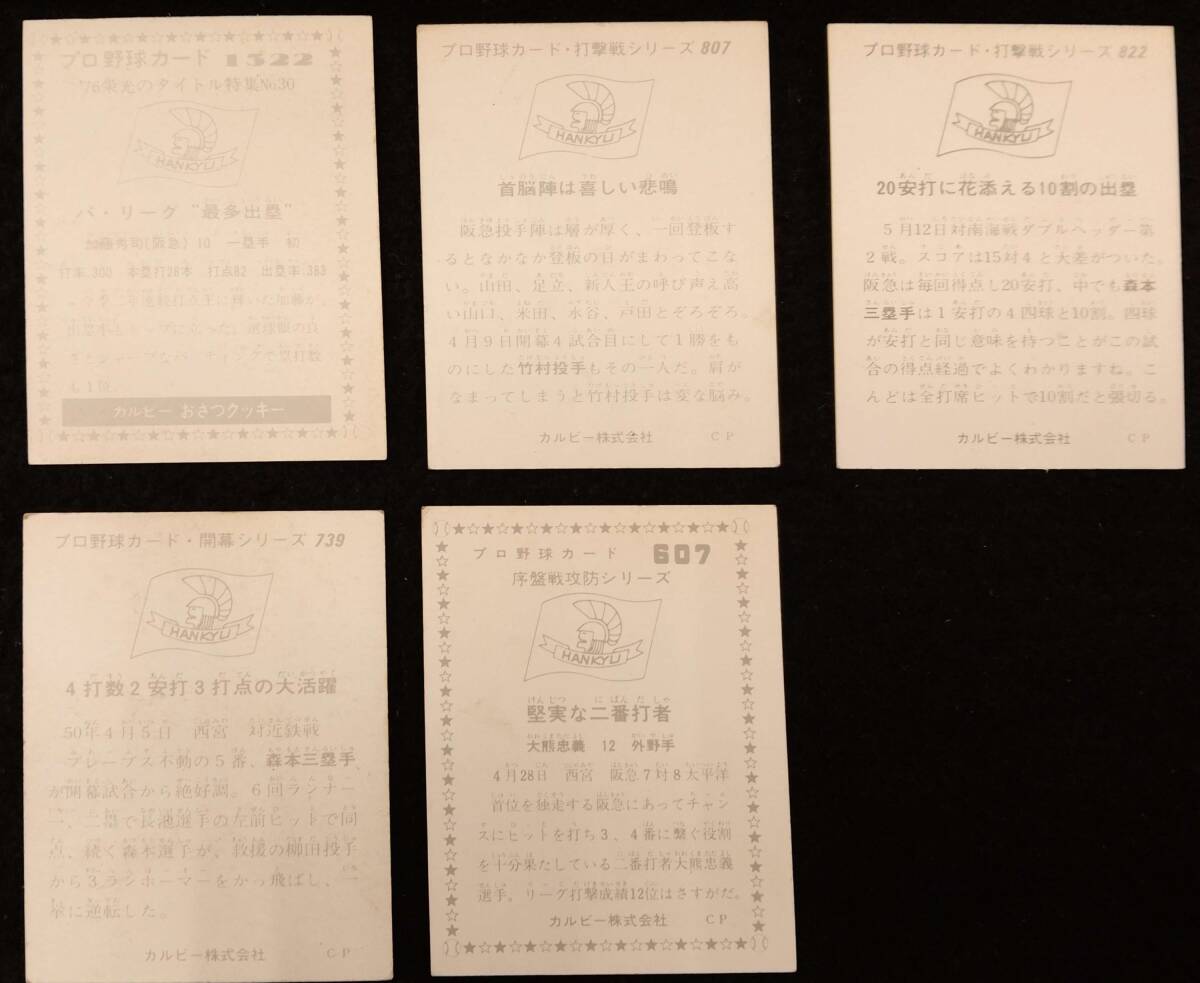 プロ野球カード 1522
'76栄光のタイトル特集No.30
HANKYU
パ・リーグ "最多出塁"
加藤秀司(阪急) 10 一塁手 初
打率.300 本塁打28本 打点82 出塁率.383
今季二年連続打点王に輝いた加藤が、
出塁率もトップに立った。選球眼の良
さとシャープなバッティングで塁打数
も1位。
カルビー おさつクッキー
プロ野球カード・打撃戦シリーズ 807
HANKYU
首脳陣は喜しい悲鳴
阪急投手陣は層が厚く、一回登板す
るとなかなか登板の日がまわってこな
い。山田、足立、新人王の呼び声え高
い山口、米田、水谷、戸田とぞろぞろ。
4月9日開幕4試合目にして1勝をも
のにした竹村投手もその一人だ。肩が
なまってしまうと竹村投手は変な脳み。
カルビー株式会社 CP
プロ野球カード・打撃戦シリーズ 822
HANKYU
20安打に花添える10割の出塁
5月12日対南海戦ダブルヘッダー第
2戦。スコアは15対4と大差がついた。
阪急は毎回得点し20安打、中でも森本
三塁手は1安打の4四球と10割。四球
が安打と同じ意味を持つことがこの試
合の得点経過でよくわかりますね。こ
んどは全打席ヒットで10割だと張切る。
カルビー株式会社 CP
プロ野球カード・開幕シリーズ 739
HANKYU
4打数2安打3打点の大活躍
50年4月5日 西宮 対近鉄戦
ブレーブス不動の5番、森本三塁手
が開幕試合から絶好調。6回ランナー
一、二塁で長池選手の左前ヒットで同
点、続く森本選手が、救援の柳田投手
から3ランホーマーをかっ飛ばし、一
挙に逆転した。
カルビー株式会社 CP
プロ野球カード 607
序盤戦攻防シリーズ
HANKYU
堅実な二番打者
大熊忠義 12 外野手
4月28日 西宮 阪急7対8太平洋
首位を独走する阪急にあってチャン
スにヒットを打ち3、4番に繋ぐ役割
を十分果たしている二番打者大熊忠義
選手。リーグ打撃成績12位はさすがだ。
カルビー株式会社 CP